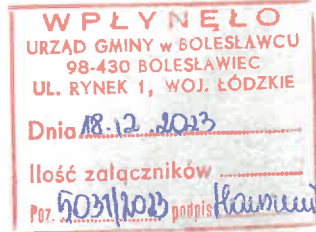 WPŁYNĘŁO
URZĄD GMINY w BOLESŁAWCU
98-430 BOLESŁAWIEC
UL. RYNEK 1, WOJ. ŁÓDZKIE
Dnia 18.12.2023
Ilość załączników ..................
Poz. 5031/2023 podpis